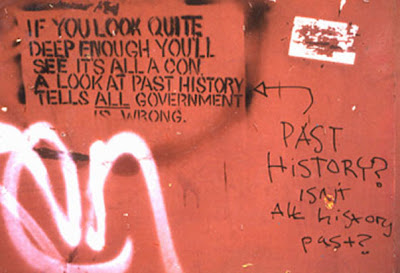 IF YOU LOOK QUITE
DEEP ENOUGH YOU'LL
SEE IT'S ALL A CON.
A LOOK AT PAST HISTORY
TELLS ALL GOVERNMENT
IS WRONG.
PAST
HISTORY?
ISn't
ALL history
past?